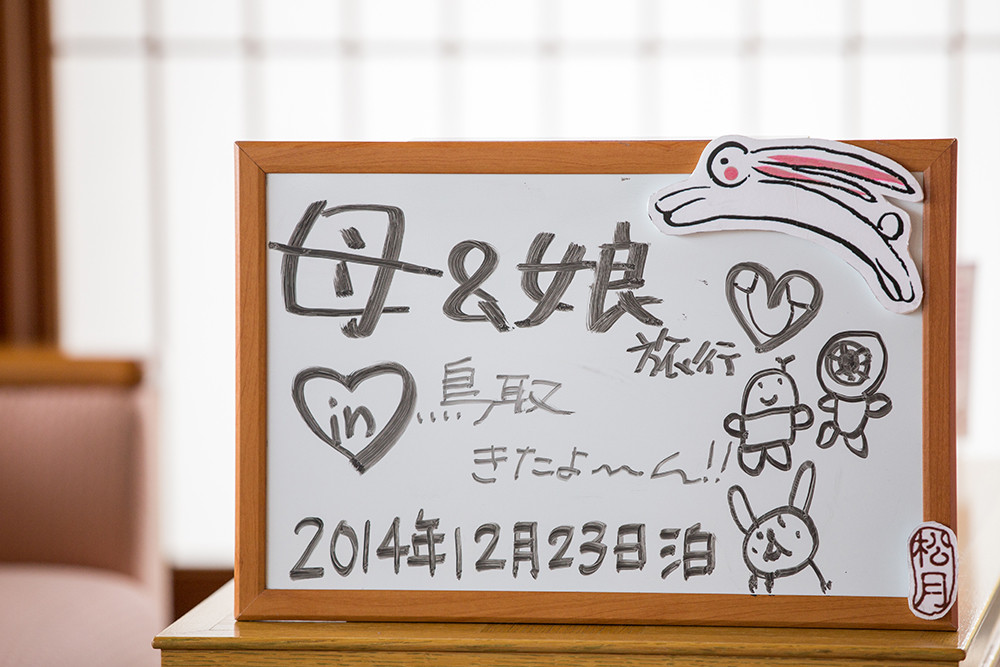 母&娘
旅行
in 鳥取
きたよ〜ん!!
2014年12月23日泊
松月